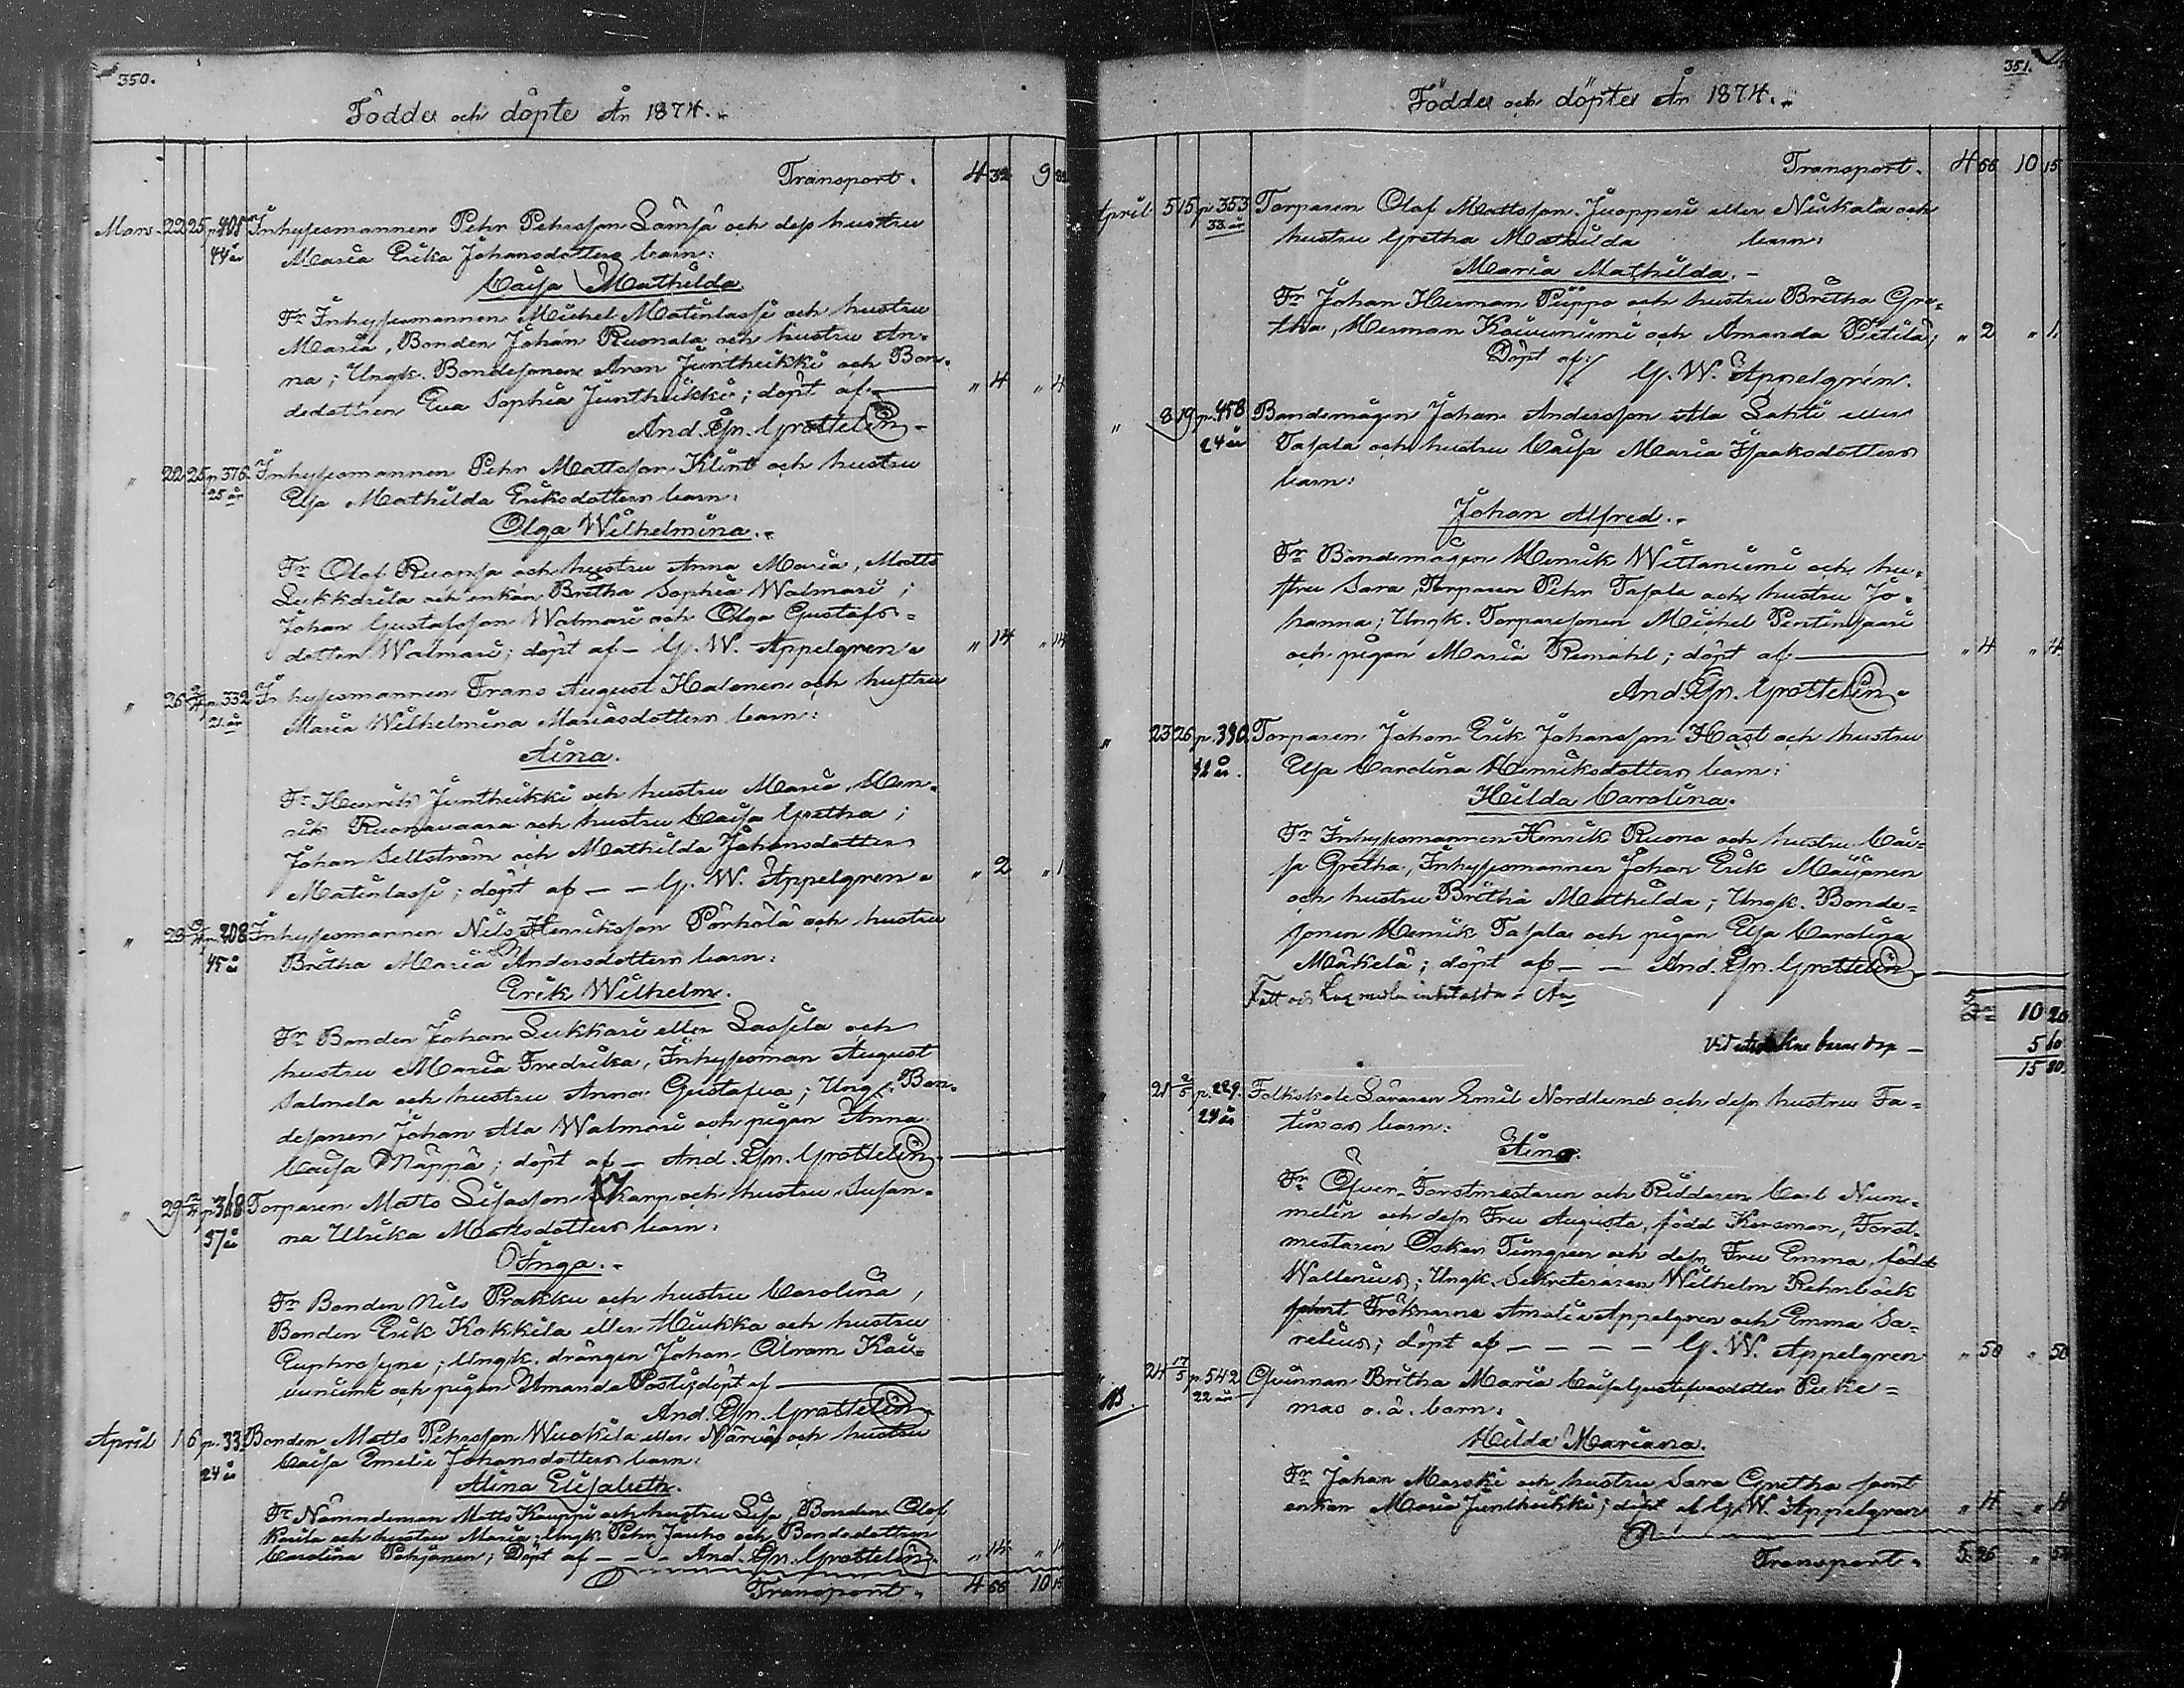 350.
Födde och döpte År 1874.
Transport. 4 32 9 82
Mars 22 25 p. 408 Inhysesmannen Pehr Pehrsson Lämsä och dess hustru
44 år Maria Erika Johansdotters barn:
Caisa Mathilda
Fr Inhysesmannen Michel Matinlassi och hustru
Maria, Bonden Johan Ruonala och hustru An-
na; Ungk. Bondesonen Aron Junthikki och Bon-
dedottren Eva Sophia Junthikki; döpt af " 4 " 4
And. Gr. Grottelin
" 22 25 p. 376 Inhysesmannen Pehr Mattsson Klint och hustru
25 år Elsa Mathilda Eriksdotters barn:
Olga Wilhelmina.
Fr Olof Ruonja och hustru Anna Maria, Matts
och enkan Britha Sophia Walmari;
Johan Gustafsson Walmari och Olga Gustafs-
dotter Walmari; döpt af G. W. Appelgren " 14 " 14
" 26 p. 332 Inhysesmannen Frans August Halonen och hustru
21 år Maria Wilhelmina Mariasdotters barn:
Aina.
Fr Henrik Junthikki och hustru Maria, Hen-
rik Ruonavaara och hustru Caisa Gretha;
Johan Sellström och Mathilda Johansdotter
Matinlassi; döpt af G. W. Appelgren " 2 " 1
" 23 p. 208 Inhysesmannen Nils Henriksson Pörhölä och hustru
45 år Britha Maria Andersdotters barn:
Erik Wilhelm.
Fr Bonden Johan Lukkari eller Lassila och
hustru Maria Fredrika, Inhysesman August
Salmela och hustru Anna Gustafva; Ungk. Bon-
desonen Johan Ala Walmari och pigan Anna
Caisa Näppä; döpt af And. Gr. Grottelin
" 29 p. 368 Torparen Matts Lisasson Karp och hustru Susan-
37 år na Ulrika Mattsdotters barn:
Inga.
Fr Bonden Nils Prakku och hustru Carolina,
Bonden Erik Kokkila eller Miukka och hustru
Euphrosyne; Ungk. drängen Johan Abram Kau-
niemi och pigan Amanda Posti; döpt af
And. Gr. Grottelin
April 1 6 p. 33 Bonden Matts Pehrsson Wuokila eller Närviä och hustru
24 år Caisa Emelie Johansdotters barn:
Alina Elisabeth.
Fr Nämndeman Matts Kauppi och hustru Lisa, Bonden Olof
Kaila och hustru Maria; Ungk. Pehr Jauho och Bondedottren
Carolina Pohjanen; Döpt af And. Gr. Grottelin " 14
Transport 4 66 10 15
351.
Födde och döpte År 1874.
Transport. 4 66 10 15
April 5 15 p. 353 Torparen Olof Mattsson Juopperi eller Niskala och
33 år hustru Gretha Mathilda barn:
Maria Mathilda.
Fr Johan Herman Piippo och hustru Britha Gre-
tha, Herman Kauniemi och Amanda Pietilä; " 2 " 1
Döpt af:
G. W. Appelgren.
" 8 19 p. 458 Bondemågen Johan Andersson Ala Lahti eller
24 år Tapala och hustru Caisa Maria Isaaksdotters
barn:
Johan Alfred.
Fr Bondemågen Henrik Wittaniemi och hu-
stru Sara, Torparen Pehr Tapala och hustru Jo-
hanna; Ungk. Torparesonen Michel Pirtinsaari
och pigan Maria Rimähl; döpt af " 4 " 4
And. Gr. Grottelin
" 23 26 p. 390 Torparen Johan Erik Johansson Hast och hustru
32 år. Elsa Carolina Henriksdotters barn:
Hilda Carolina.
Fr Inhysesmannen Henrik Ruona och hustru Cai-
sa Gretha, Inhysesmannen Johan Erik Mäjänen
och hustru Britha Mathilda; Ungk. Bonde-
sonen Henrik Tapala och pigan Elsa Carolina
Märkelä; döpt af And. Gr. Grottelin
10 20
5 60
15 80
21 2/5 p. 229. Folkskole Läraren Emil Nordlund och dess hustru Fa-
24 år timas barn:
Aina.
Fr Öfver-Forstmestaren och Riddaren Carl Num-
melin och dess Fru Augusta, född Kersman, Forst-
mestaren Oskar Timgren och dess Fru Emma, född
Wallenius; Ungk. Sekreteraren Wilhelm Rehnbäck
samt Fröknarna Amalia Appelgren och Emma Sa-
relius; döpt af G. W. Appelgren " 50 " 50
24 17/5 p. 542 Qvinnan Britha Maria Caisa Gustafvasdotter
22 år o. ä. barn:
Hilda Mariana.
Fr Johan Marski och hustru Sara Gretha samt
enkan Maria Junthikki; döpt af G. W. Appelgren " 4 " 4
Transport 5 26 " 54